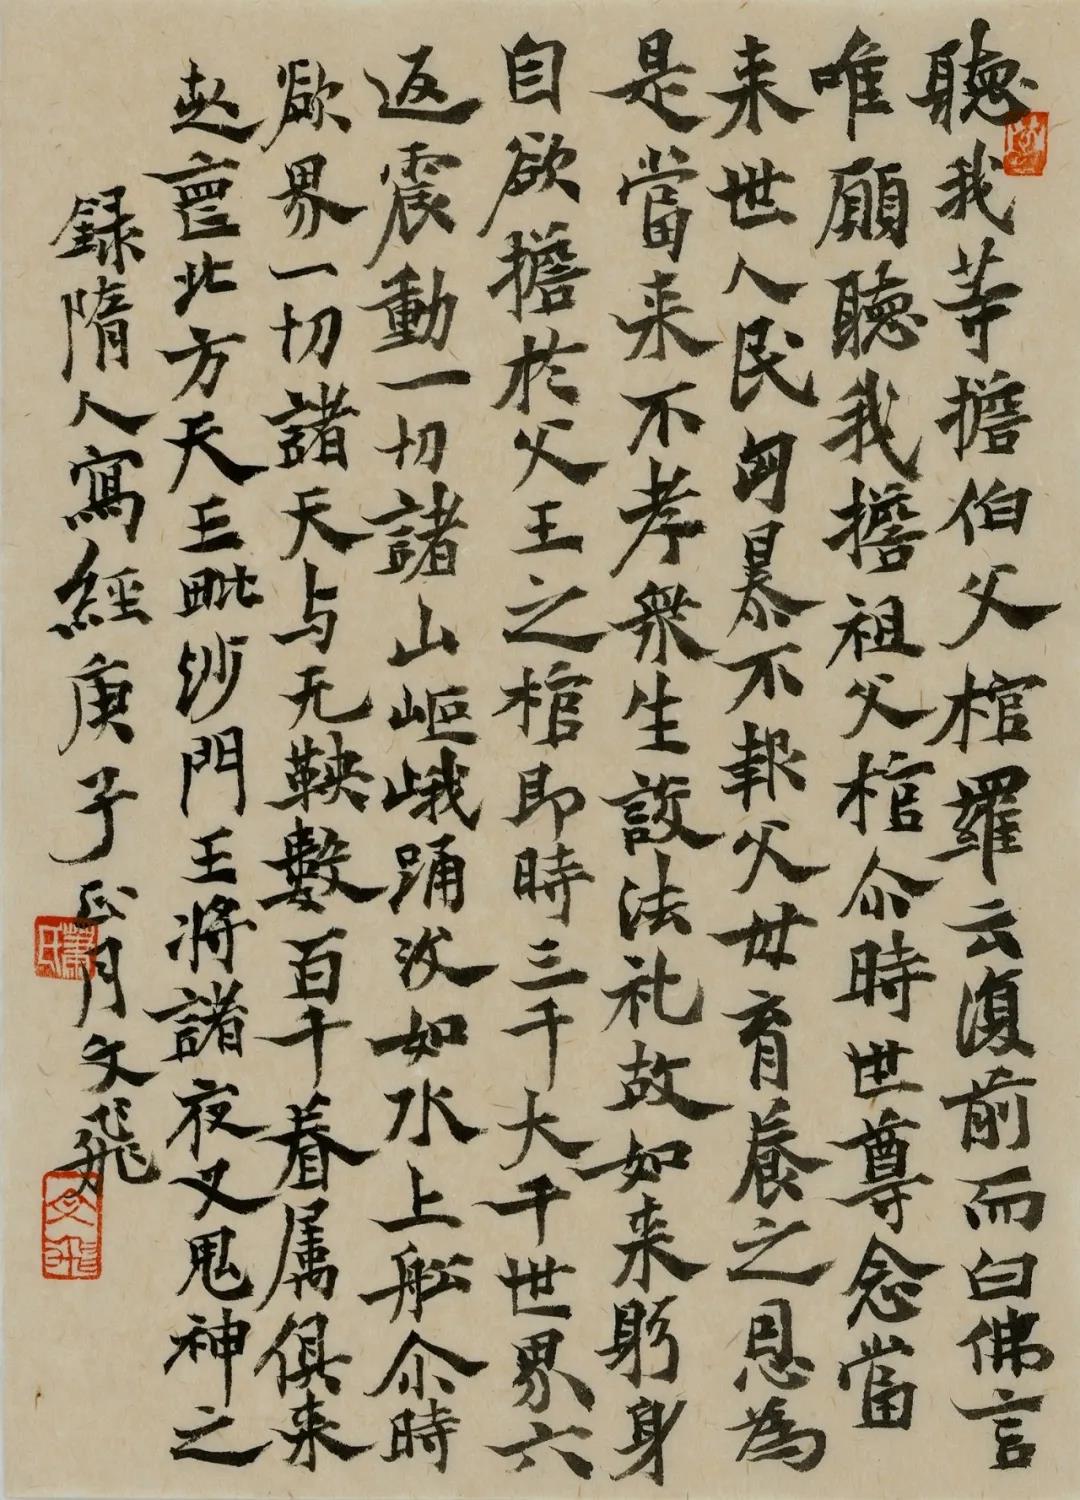 聽我等擔伯父棺羅云復前而白佛言
唯願聽我擔祖父棺尒時世尊念當
来世人民㐫暴不報父母育養之恩為
是當来不孝衆生設法礼故如来躬身
自欲擔於父王之棺即時三千大千世界六
返震動一切諸山嶇峨踊没如水上舩尒時
欲界一切諸天与无鞅數百千眷属俱来
赴喪北方天王毗沙門王将諸夜叉鬼神之
録隋人寫經庚子正月文飛
蕭氏
文飛